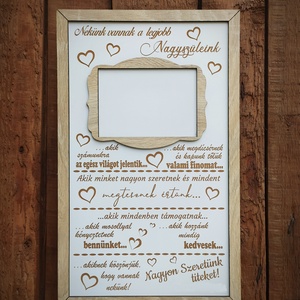 Nekünk vannak a legjobb
Nagyszüleink
...akik
számunkra
az egész világot jelentik...
...akik megdicsérnek
és kapunk tőlük
valami finomat...
Akik minket nagyon szeretnek és mindent
megtesznek értünk...
...akik mindenben támogatnak...
...akik mosollyal
kényeztetnek
bennünket...
...akik hozzánk
mindig
kedvesek...
...akiknek köszönjük,
hogy vannak
nekünk!
Nagyon Szeretünk
titeket!